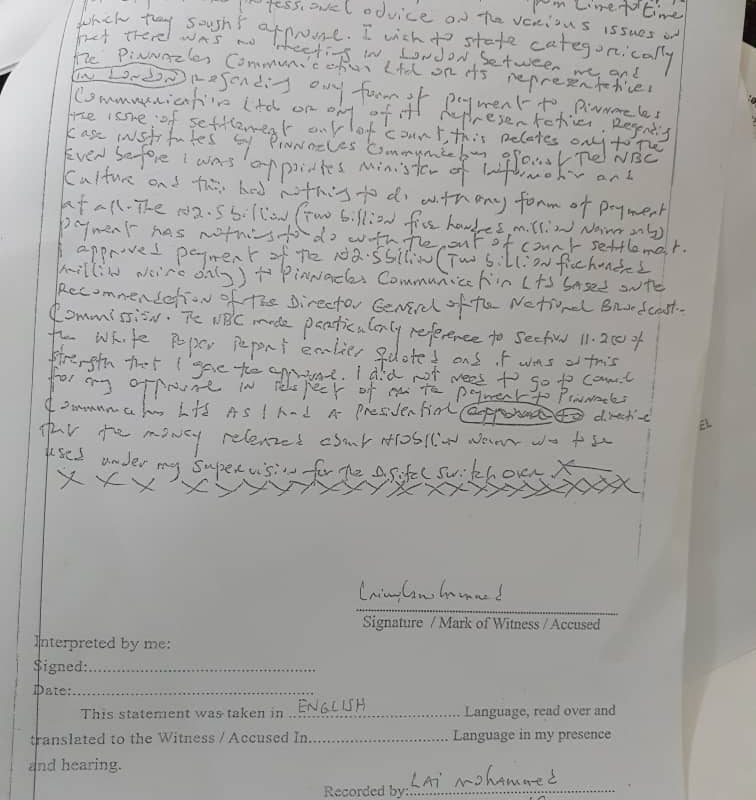 professional advice on the various issues on
which they sought approval. I wish to state categorically
that there was no meeting in London between me and
The Pinnacles Communication Ltd or its representatives
in London regarding any form of payment to Pinnacles
Communications Ltd or any of it representative. Regarding
the issue of settlement out of court, this relates only to the
case institutes by Pinnacles Communication against The NBC
Even before I was appointes Minister of Information and
Culture and this had nothing to do with any form of payment
at all. The N2.5 billion (Two billion five hundred million Naira only)
payment has nothing to do with the out of court settlement.
I approved payment of the N2.5 billion (Two billion five hundred
million naira only) to Pinnacles Communication Ltd based on the
Recommendation of the Director General of the National Broadcast-
Commission. The NBC made particularly reference to Section 11.2(c) of
the White Paper Report earlier quoted and it was on this
strength that I gave the approval. I did not need to go to Council
for my approval in respect of the payment to Pinnacles
Communication Ltd As I had a Presidential approval to directive
that the money released about N10 billion Naira was to be
used under my supervision for the Digital switch over. X
X X X X X X X X X X X X X X X X X X X X X X X
Signature / Mark of Witness / Accused
Interpreted by me:
Signed:
Date:
This statement was taken in ENGLISH Language, read over and
translated to the Witness / Accused In Language in my presence
and hearing.
Recorded by: LAI MOHAMMED